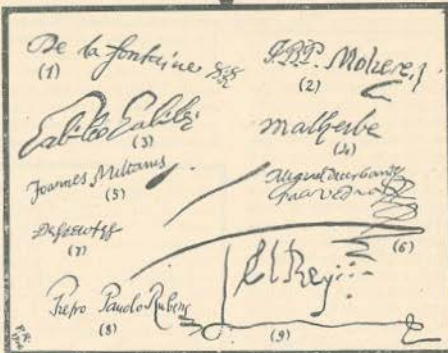 De la fontaine
(1)
J.B.P. Moliere
(2)
Galileo Galilei
(3)
Malherbe
(4)
Joannes Miltonius
(5)
Miguel de Cerbantes
Saavedra
(6)
Descartes
(7)
Pietro Pauolo Rubens
(8)
El Rey
(9)